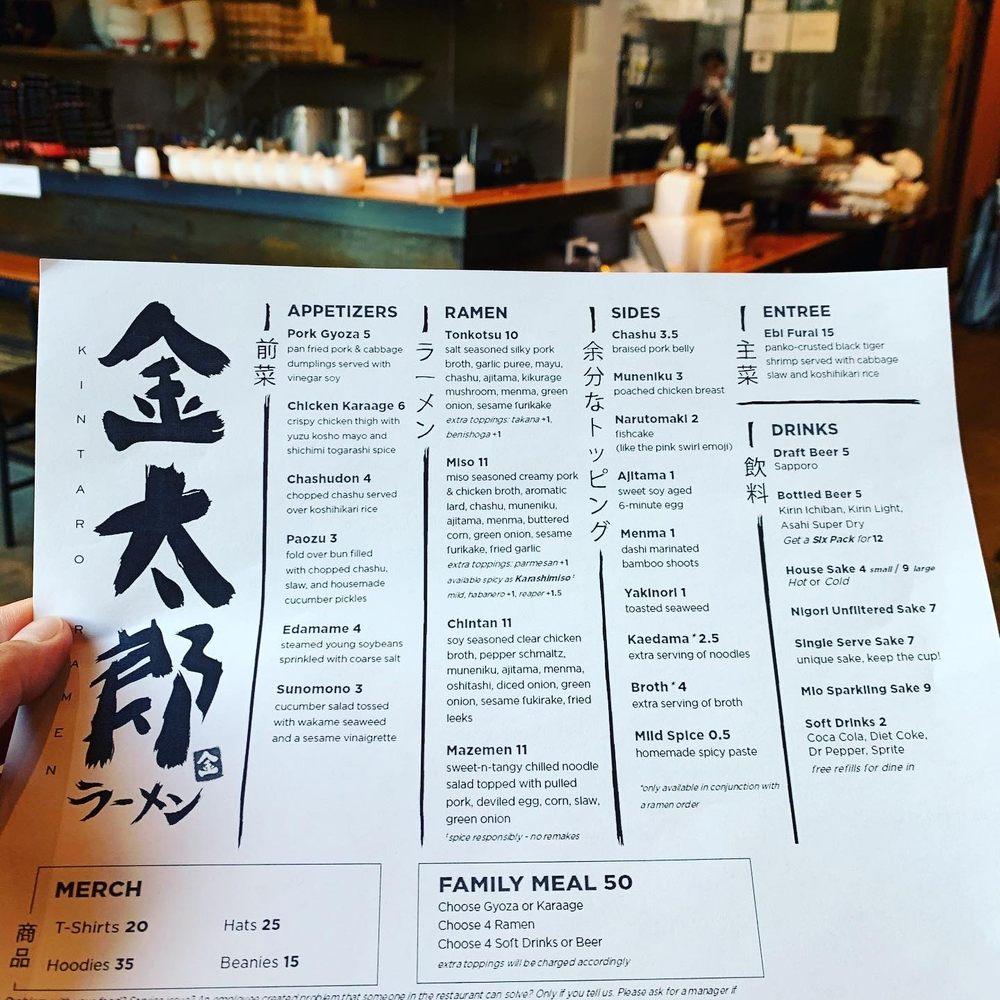 金太郎
ラーメン
金
KINTARO RAMEN
前菜
APPETIZERS
Pork Gyoza 5
pan fried pork & cabbage
dumplings served with
vinegar soy
Chicken Karaage 6
crispy chicken thigh with
yuzu kosho mayo and
shichimi togarashi spice
Chashudon 4
chopped chashu served
over koshihikari rice
Paozu 3
fold over bun filled
with chopped chashu,
slaw, and housemade
cucumber pickles
Edamame 4
steamed young soybeans
sprinkled with coarse salt
Sunomono 3
cucumber salad tossed
with wakame seaweed
and a sesame vinaigrette
ラーメン
RAMEN
Tonkotsu 10
salt seasoned silky pork
broth, garlic puree, mayu,
chashu, ajitama, kikurage
mushroom, menma, green
onion, sesame furikake
extra toppings: takana +1,
benishoga +1
Miso 11
miso seasoned creamy pork
& chicken broth, aromatic
lard, chashu, muneniku,
ajitama, menma, buttered
corn, green onion, sesame
furikake, fried garlic
extra toppings: parmesan +1
available spicy as Karashimiso !
mild, habanero +1, reaper +1.5
Chintan 11
soy seasoned clear chicken
broth, pepper schmaltz,
muneniku, ajitama, menma,
oshitashi, diced onion, green
onion, sesame fukirake, fried
leeks
Mazemen 11
sweet-n-tangy chilled noodle
salad topped with pulled
pork, deviled egg, corn, slaw,
green onion
! spice responsibly - no remakes
余分なトッピング
SIDES
Chashu 3.5
braised pork belly
Muneniku 3
poached chicken breast
Narutomaki 2
fishcake
(like the pink swirl emoji)
Ajitama 1
sweet soy aged
6-minute egg
Menma 1
dashi marinated
bamboo shoots
Yakinori 1
toasted seaweed
Kaedama * 2.5
extra serving of noodles
Broth * 4
extra serving of broth
Mild Spice 0.5
homemade spicy paste
*only available in conjunction with
a ramen order
主菜
ENTREE
Ebi Furai 15
panko-crusted black tiger
shrimp served with cabbage
slaw and koshihikari rice
飲料
DRINKS
Draft Beer 5
Sapporo
Bottled Beer 5
Kirin Ichiban, Kirin Light,
Asahi Super Dry
Get a Six Pack for 12
House Sake 4 small / 9 large
Hot or Cold
Nigori Unfiltered Sake 7
Single Serve Sake 7
unique sake, keep the cup!
Mio Sparkling Sake 9
Soft Drinks 2
Coca Cola, Diet Coke,
Dr Pepper, Sprite
free refills for dine in
商品
MERCH
T-Shirts 20 Hats 25
Hoodies 35 Beanies 15
FAMILY MEAL 50
Choose Gyoza or Karaage
Choose 4 Ramen
Choose 4 Soft Drinks or Beer
extra toppings will be charged accordingly
Problem with your food? Service issue? An employee created problem that someone in the restaurant can solve? Only if you tell us. Please ask for a manager if